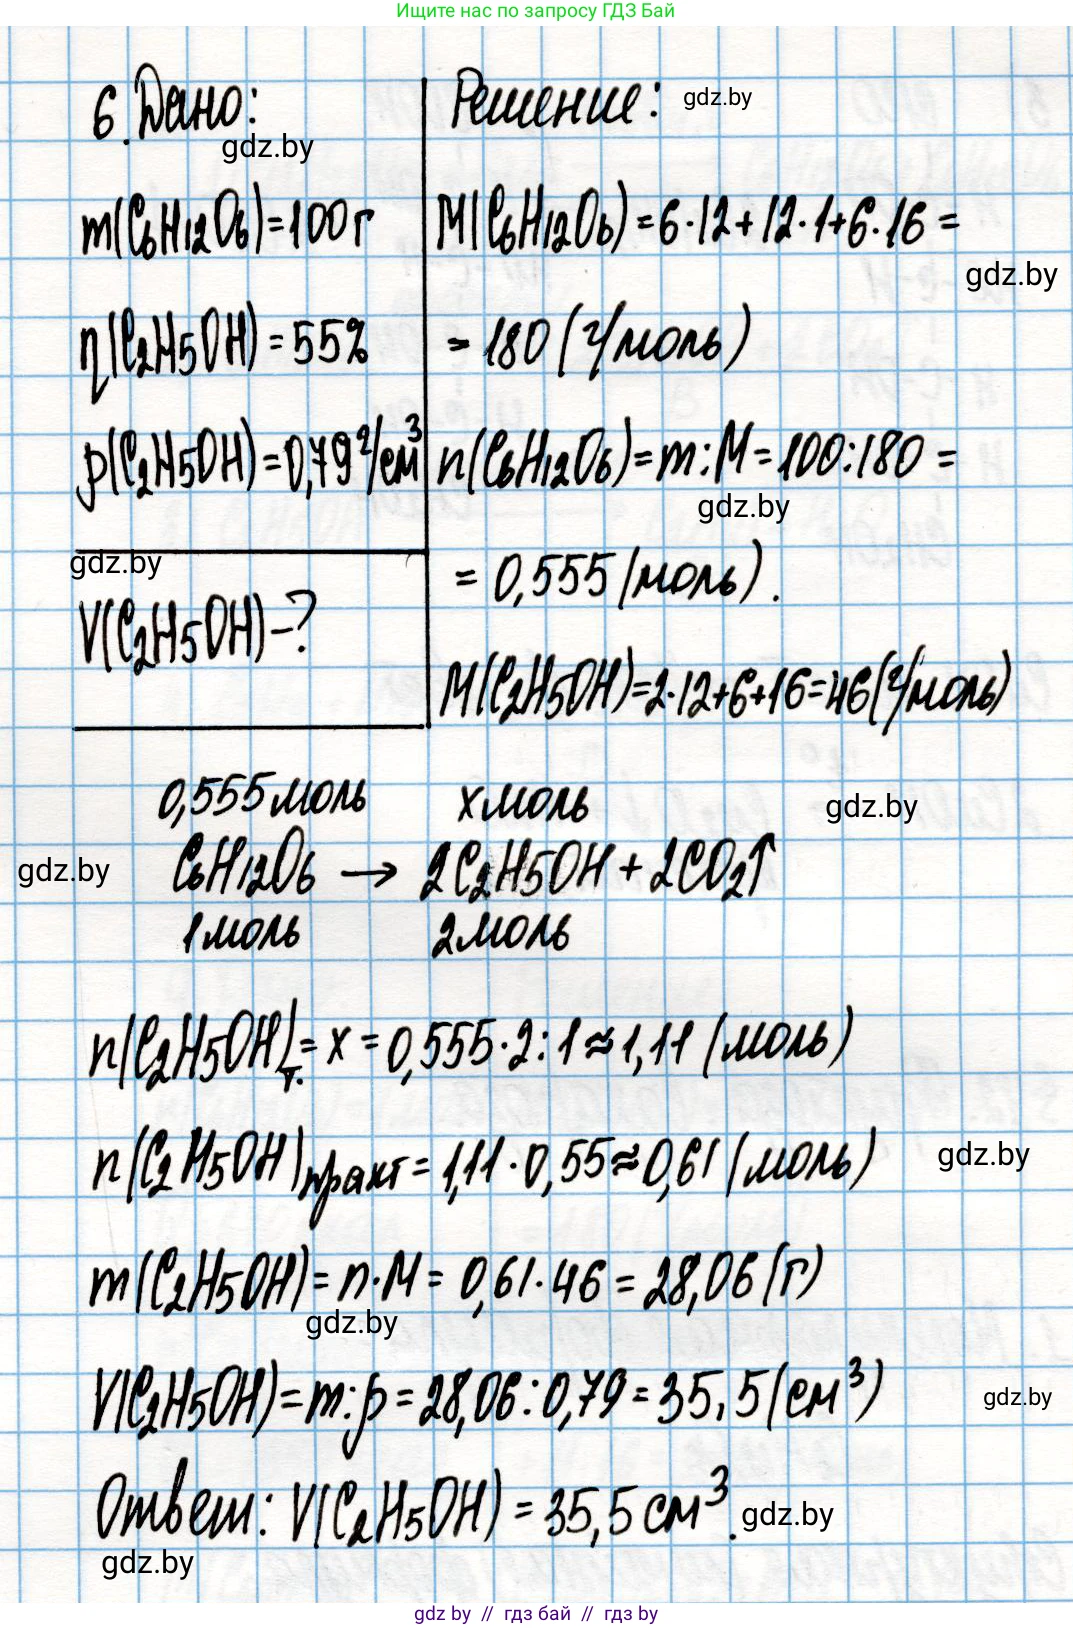 Ищите нас по запросу ГДЗ Бай
6. Дано:
gdz.by
m(C₆H₁₂O₆)=100г
η(C₂H₅OH)=55%
ρ(C₂H₅OH)=0,79г/см³
gdz.by
V(C₂H₅OH)-?
Решение: gdz.by
M(C₆H₁₂O₆)=6·12+12·1+6·16=
gdz.by
=180(г/моль)
n(C₆H₁₂O₆)=m:M=100:180=
gdz.by
=0,555(моль).
M(C₂H₅OH)=2·12+6+16=46(г/моль)
0,555моль xмоль gdz.by
gdz.by C₆H₁₂O₆ → 2C₂H₅OH + 2CO₂↑
1моль 2моль
n(C₂H₅OH)т.=x=0,555·2:1≈1,11(моль)
n(C₂H₅OH)практ=1,11·0,55≈0,61(моль) gdz.by
m(C₂H₅OH)=n·M=0,61·46=28,06(г)
gdz.by
V(C₂H₅OH)=m:ρ=28,06:0,79=35,5(см³) gdz.by
Ответ: V(C₂H₅OH)=35,5см³. gdz.by
gdz.by
gdz by // гдз бай // gdz by